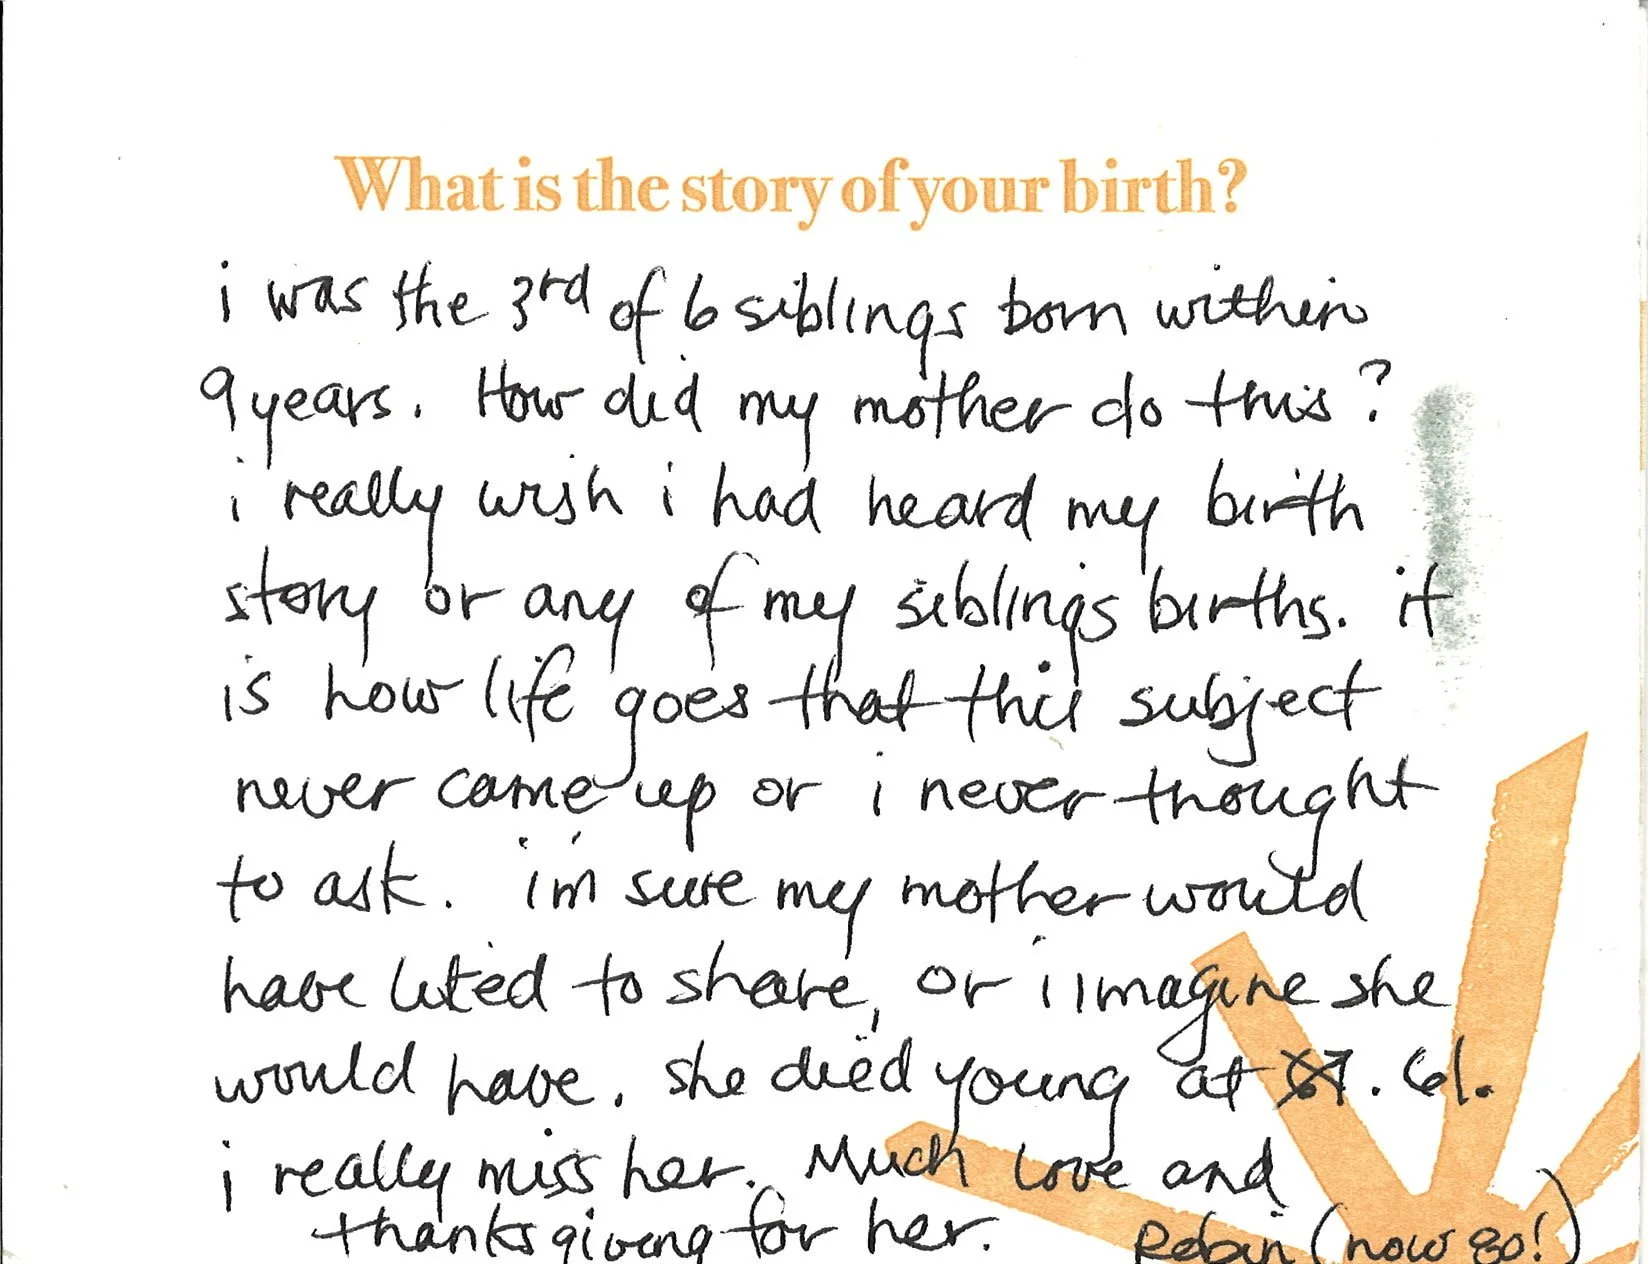 What is the story of your birth?
i was the 3rd of 6 siblings born within
9 years. How did my mother do this?
i really wish i had heard my birth
story or any of my siblings births. it
is how life goes that this subject
never came up or i never thought
to ask. i'm sure my mother would
have liked to share, or i imagine she
would have. she died young at 67. 61.
i really miss her. Much love and
thanksgiving for her. Robin (now 80!)